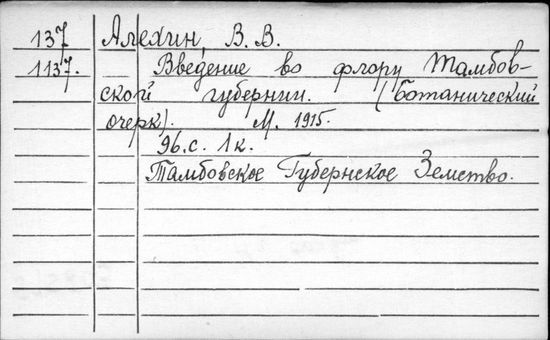 137 Алехин, В. В.
1137. Введение во флору Тамбов-
ской губернии. (Ботанический
очерк). М. 1915.
96.с. 1к.
Тамбовское Губернское Земство.